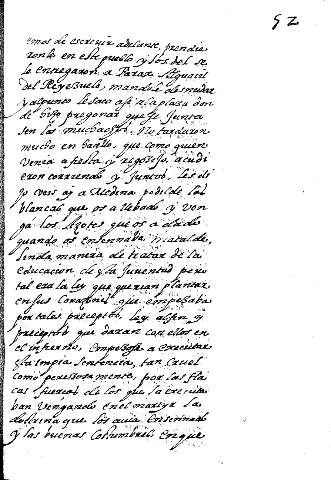 52
emos de escrevir adelante, prendie
ronle en este pueblo y los del se
lo entregaron a Parar Alguacil
del Reyezuelo, mandole desnudar
y al punto le saco asi a la plaza don
de hizo pregonar que se Junta
sen los muchachos. No tardaron
mucho en hazello, que como quien
venia a fiesta y regozijo, acudi
eron corriendo y Juntos, les di
jo veis ay a Medina pedilde las
blancas que os a llebado y ven
ga los Azotes que os a dado
quando os enseñaba
linda manera de tratar de la
educacion de la Juventud pero
tal era la ley que querian plantar
en sus Corazones que empesaba
por tales preceptos, ley al fin y
preceptos que daran con ellos en
el infierno. Comensose a executar
la impia sentencia, tan cruel
como perezosamente, por las fla
cas fuerzas de los que la executa
ban vengando en el martyr la
doctrina que los avia Enseñado
y las buenas Costumbres en que